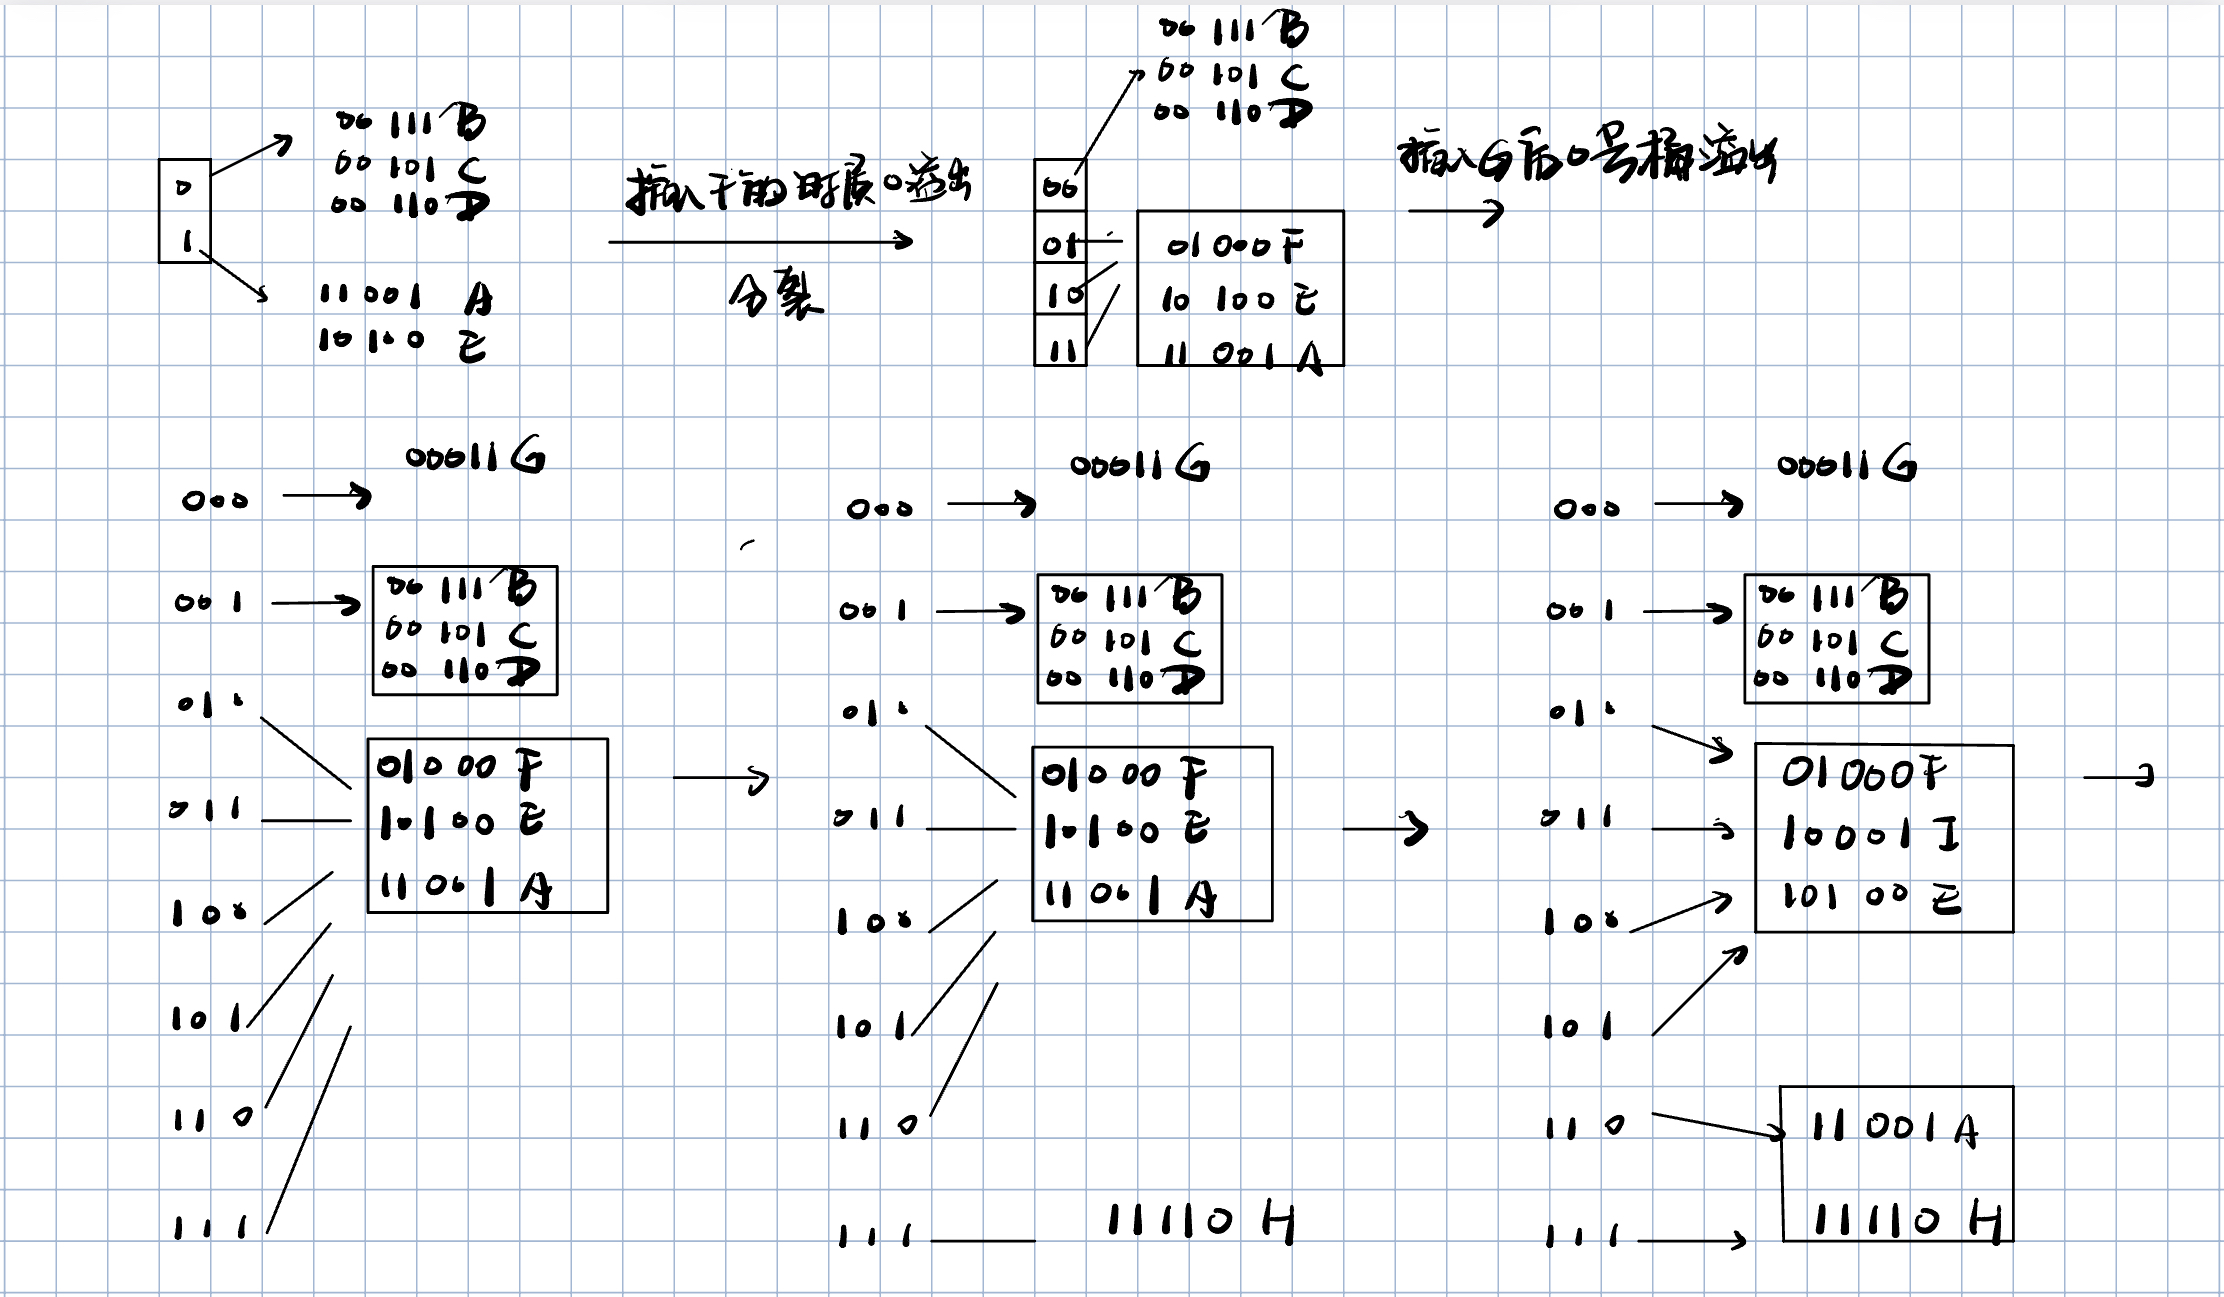 0
1
00 111 B
00 101 C
00 110 D
11 001 A
10 100 E
插入F的时候0溢出
分裂
00
01
10
11
00 111 B
00 101 C
00 110 D
01 000 F
10 100 E
11 001 A
插入G后0号桶溢出
000
001
010
011
100
101
110
111
00011 G
00 111 B
00 101 C
00 110 D
01000 F
10100 E
11001 A
000
001
010
011
100
101
110
111
00011 G
00 111 B
00 101 C
00 110 D
01000 F
10100 E
11001 A
11110 H
000
001
010
011
100
101
110
111
00011 G
00 111 B
00 101 C
00 110 D
01000 F
10001 I
10100 E
11001 A
11110 H